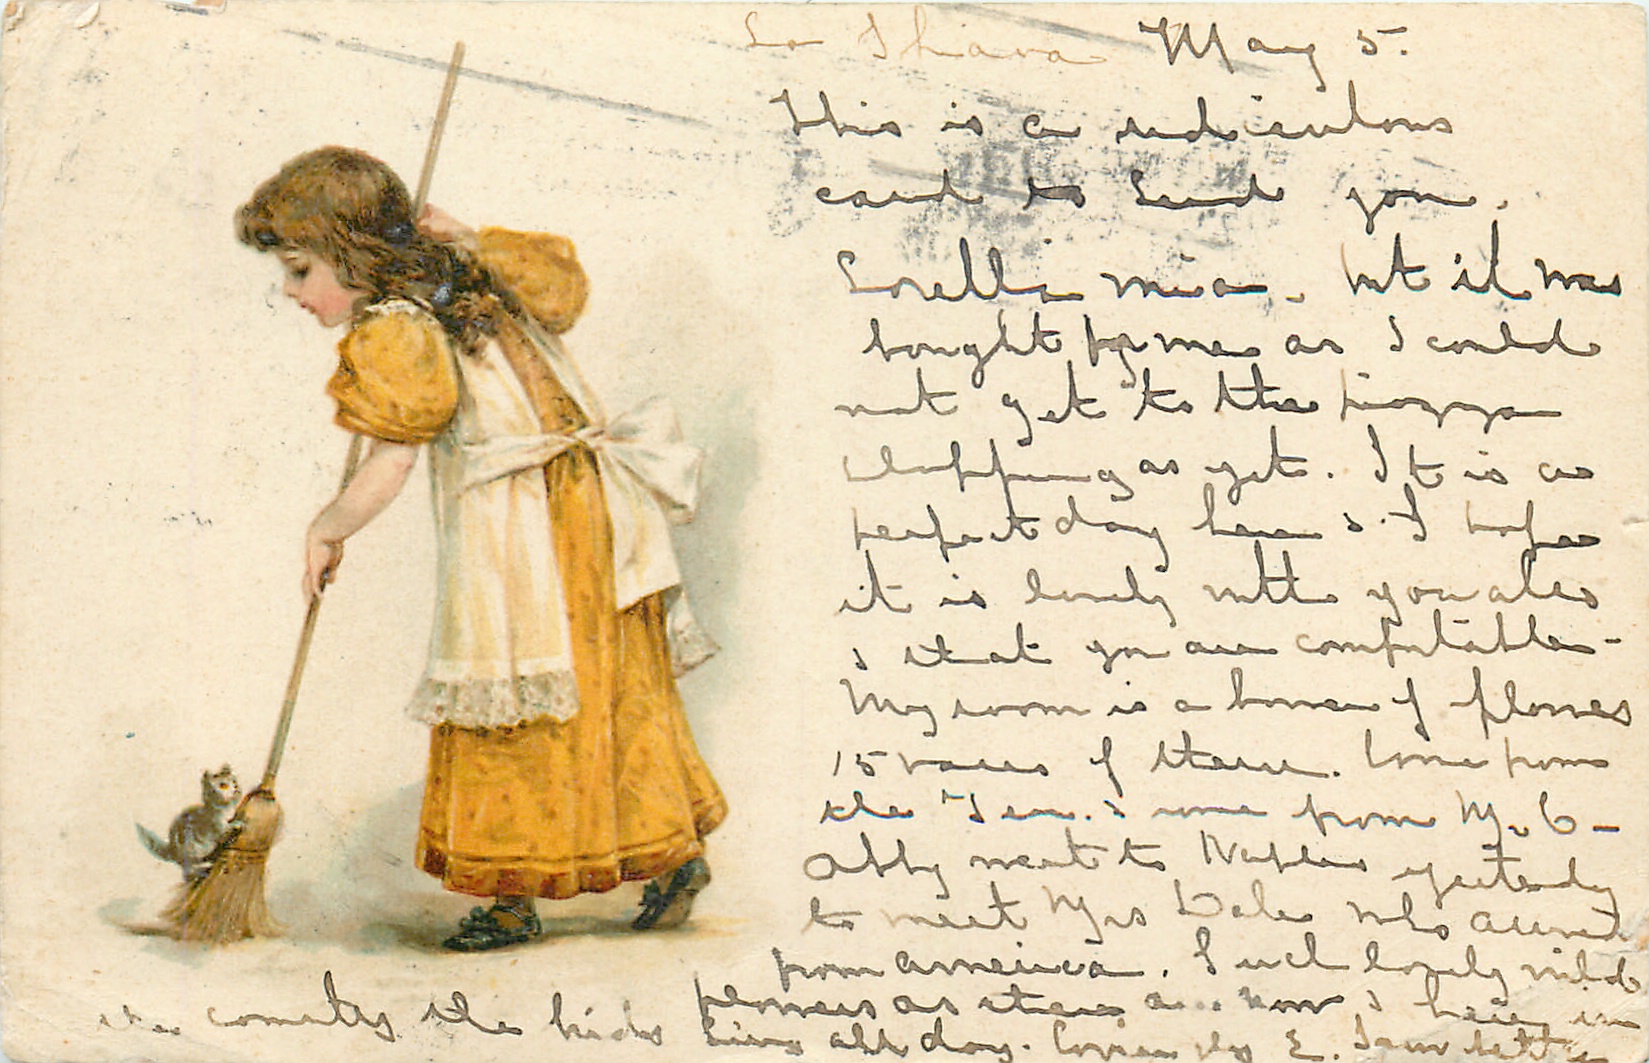 La Thava May 5.
This is a ridiculous
card to send you.
Sorella mia - but it was
bought for me as I could
not get to the piazza
shopping as yet. It is a
perfect day here & I hope
it is lovely with you also
& that you are comfortable -
My room is a bower of flowers
15 vases of them. Some from
the Ten. & some from Mr. C -
Abby went to Naples yesterday
to meet Mrs Dale who arrived
from America. Such lovely wild
flowers as there are now & here in
the country the birds sing all day. Love